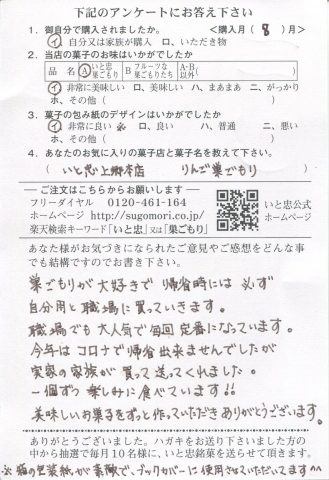 下記のアンケートにお答え下さい
1. 御自分で購入されましたか。 <購入月( 8 )月>
イ 自分又は家族が購入 ロ、いただき物
2. 当店の菓子のお味はいかがでしたか
品 名 A いと忠巣ごもり B フルーツな巣ごもりたち A・B以外( )
イ 非常に美味しい ロ、美味しい ハ、まあまあ ニ、がっかり
ホ、その他 ( )
3. 菓子の包み紙のデザインはいかがでしたか
イ 非常に良い ※ ロ、良い ハ、普通 ニ、悪い
ホ、その他 ( )
4. あなたのお気に入りの菓子店と菓子名を教えて下さい。
( いと忠上郷本店 りんご巣ごもり )
ご注文はこちらからお願いします
フリーダイヤル 0120-461-164
ホームページ http://sugomori.co.jp/
楽天検索キーワード「いと忠」又は「巣ごもり」
いと忠公式
ホームページ
あなた様がお気づきになられたご意見やご感想をどんな事
でも結構ですのでお書き下さい。
巣ごもりが大好きで帰省時には必ず
自分用と職場に買っていきます。
職場でも大人気で毎回定番になっています。
今年はコロナで帰省出来ませんでしたが
実家の家族が買って送ってくれました。
一個ずつ楽しみに食べています!!
美味しいお菓子をずっと作っていただきありがとうございます。
ありがとうございました。ハガキをお送り下さいました方
の中から抽選で毎月10名様に、いと忠銘菓を送らせて頂きます。
※箱の包装紙が素敵で、ブックカバーに使用させていただいてます^^